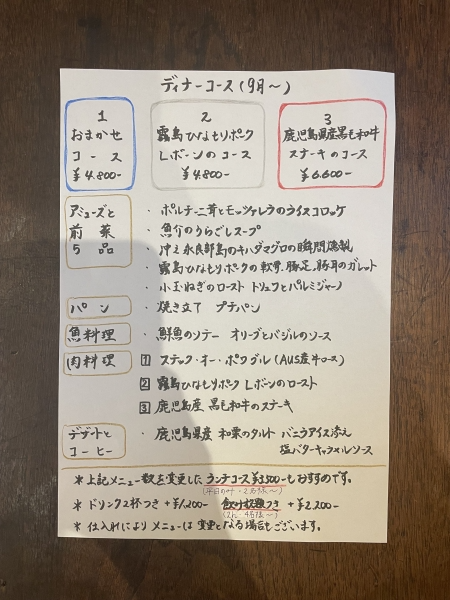 ディナーコース(9月〜)
1
おまかせ
コース
¥4.800-
2
霧島ひなもりポーク
Lボーンのコース
¥4.800-
3
鹿児島県産黒毛和牛
ステーキのコース
¥6.600-
アミューズと
前菜
5品
・ポルチーニ茸とモッツァレラのライスコロッケ
・魚介のうらごしスープ
・沖永良部島のキハダマグロの瞬間燻製
・霧島ひなもりポークの軟骨、豚足、豚耳のガレット
・小玉ねぎのロースト トリュフとパルミジャーノ
パン
・焼き立て プチパン
魚料理
・鮮魚のソテー オリーブとバジルのソース
肉料理
1 ステック・オー・ポワヴル(AUS産牛ロース)
2 霧島ひなもりポーク Lボーンのロースト
3 鹿児島産 黒毛和牛のステーキ
デザートと
コーヒー
・鹿児島県産 和栗のタルト バニラアイス添え
塩バターキャラメルソース
*上記メニュー数を変更した ランチコース¥3,500-もおすすめです。
(平日のみ・2名様〜)
*ドリンク2杯つき +¥1,200- 飲み放題つき +¥2,200-
(2h・4名様〜)
*仕入れにより メニューは 変更となる場合もございます。